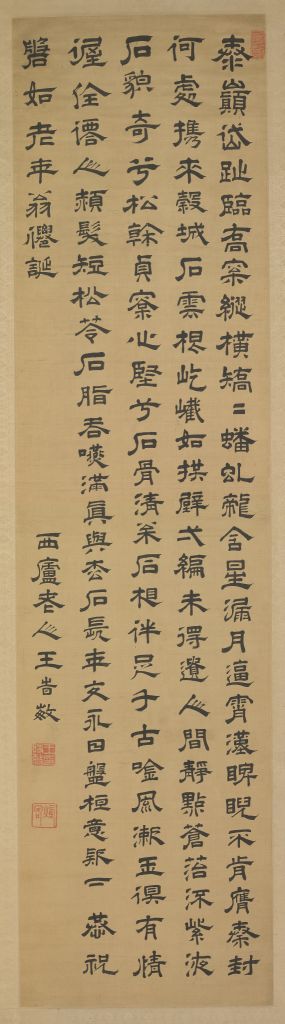 泰巔岱趾臨高㮤縱橫矯〻蟠虬龍含星漏月逼霄漢睥睨不肯膺秦封
何處攜來穀城石雲根屹嶻如拱璧弌編未得遺人間靜點蒼苔深紫液
石貌奇兮松榦貞㮤心堅兮石骨清石相伴足千古唫風漱玉俱有情
偓佺僊人頳髮短松苓石脂吞嚥滿真與枩石長年交永日盤桓意一恭祝
如老年翁誕
西廬老人王旹敏